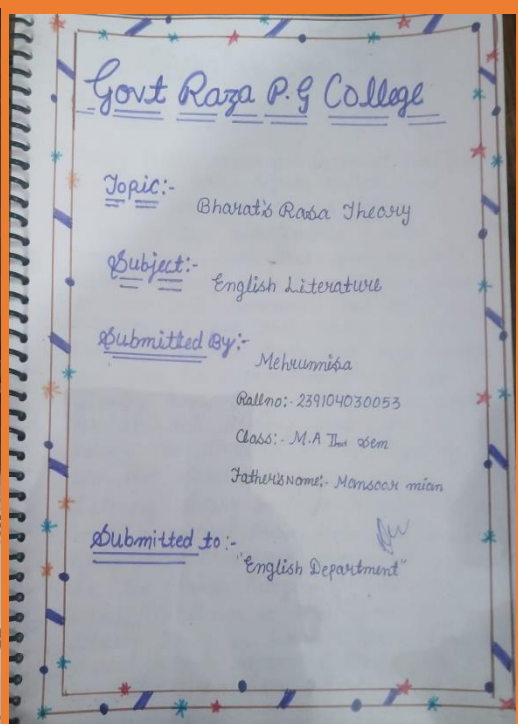 Govt Raza P.G College
Topic:-
Bharat's Rasa Theory
Subject:-
English Literature
Submitted By:-
Mehrunnisa
Rollno:- 239104030053
Class:- M.A IInd Sem
Father's Name:- Mansoor mian
Submitted to:-
"English Department"